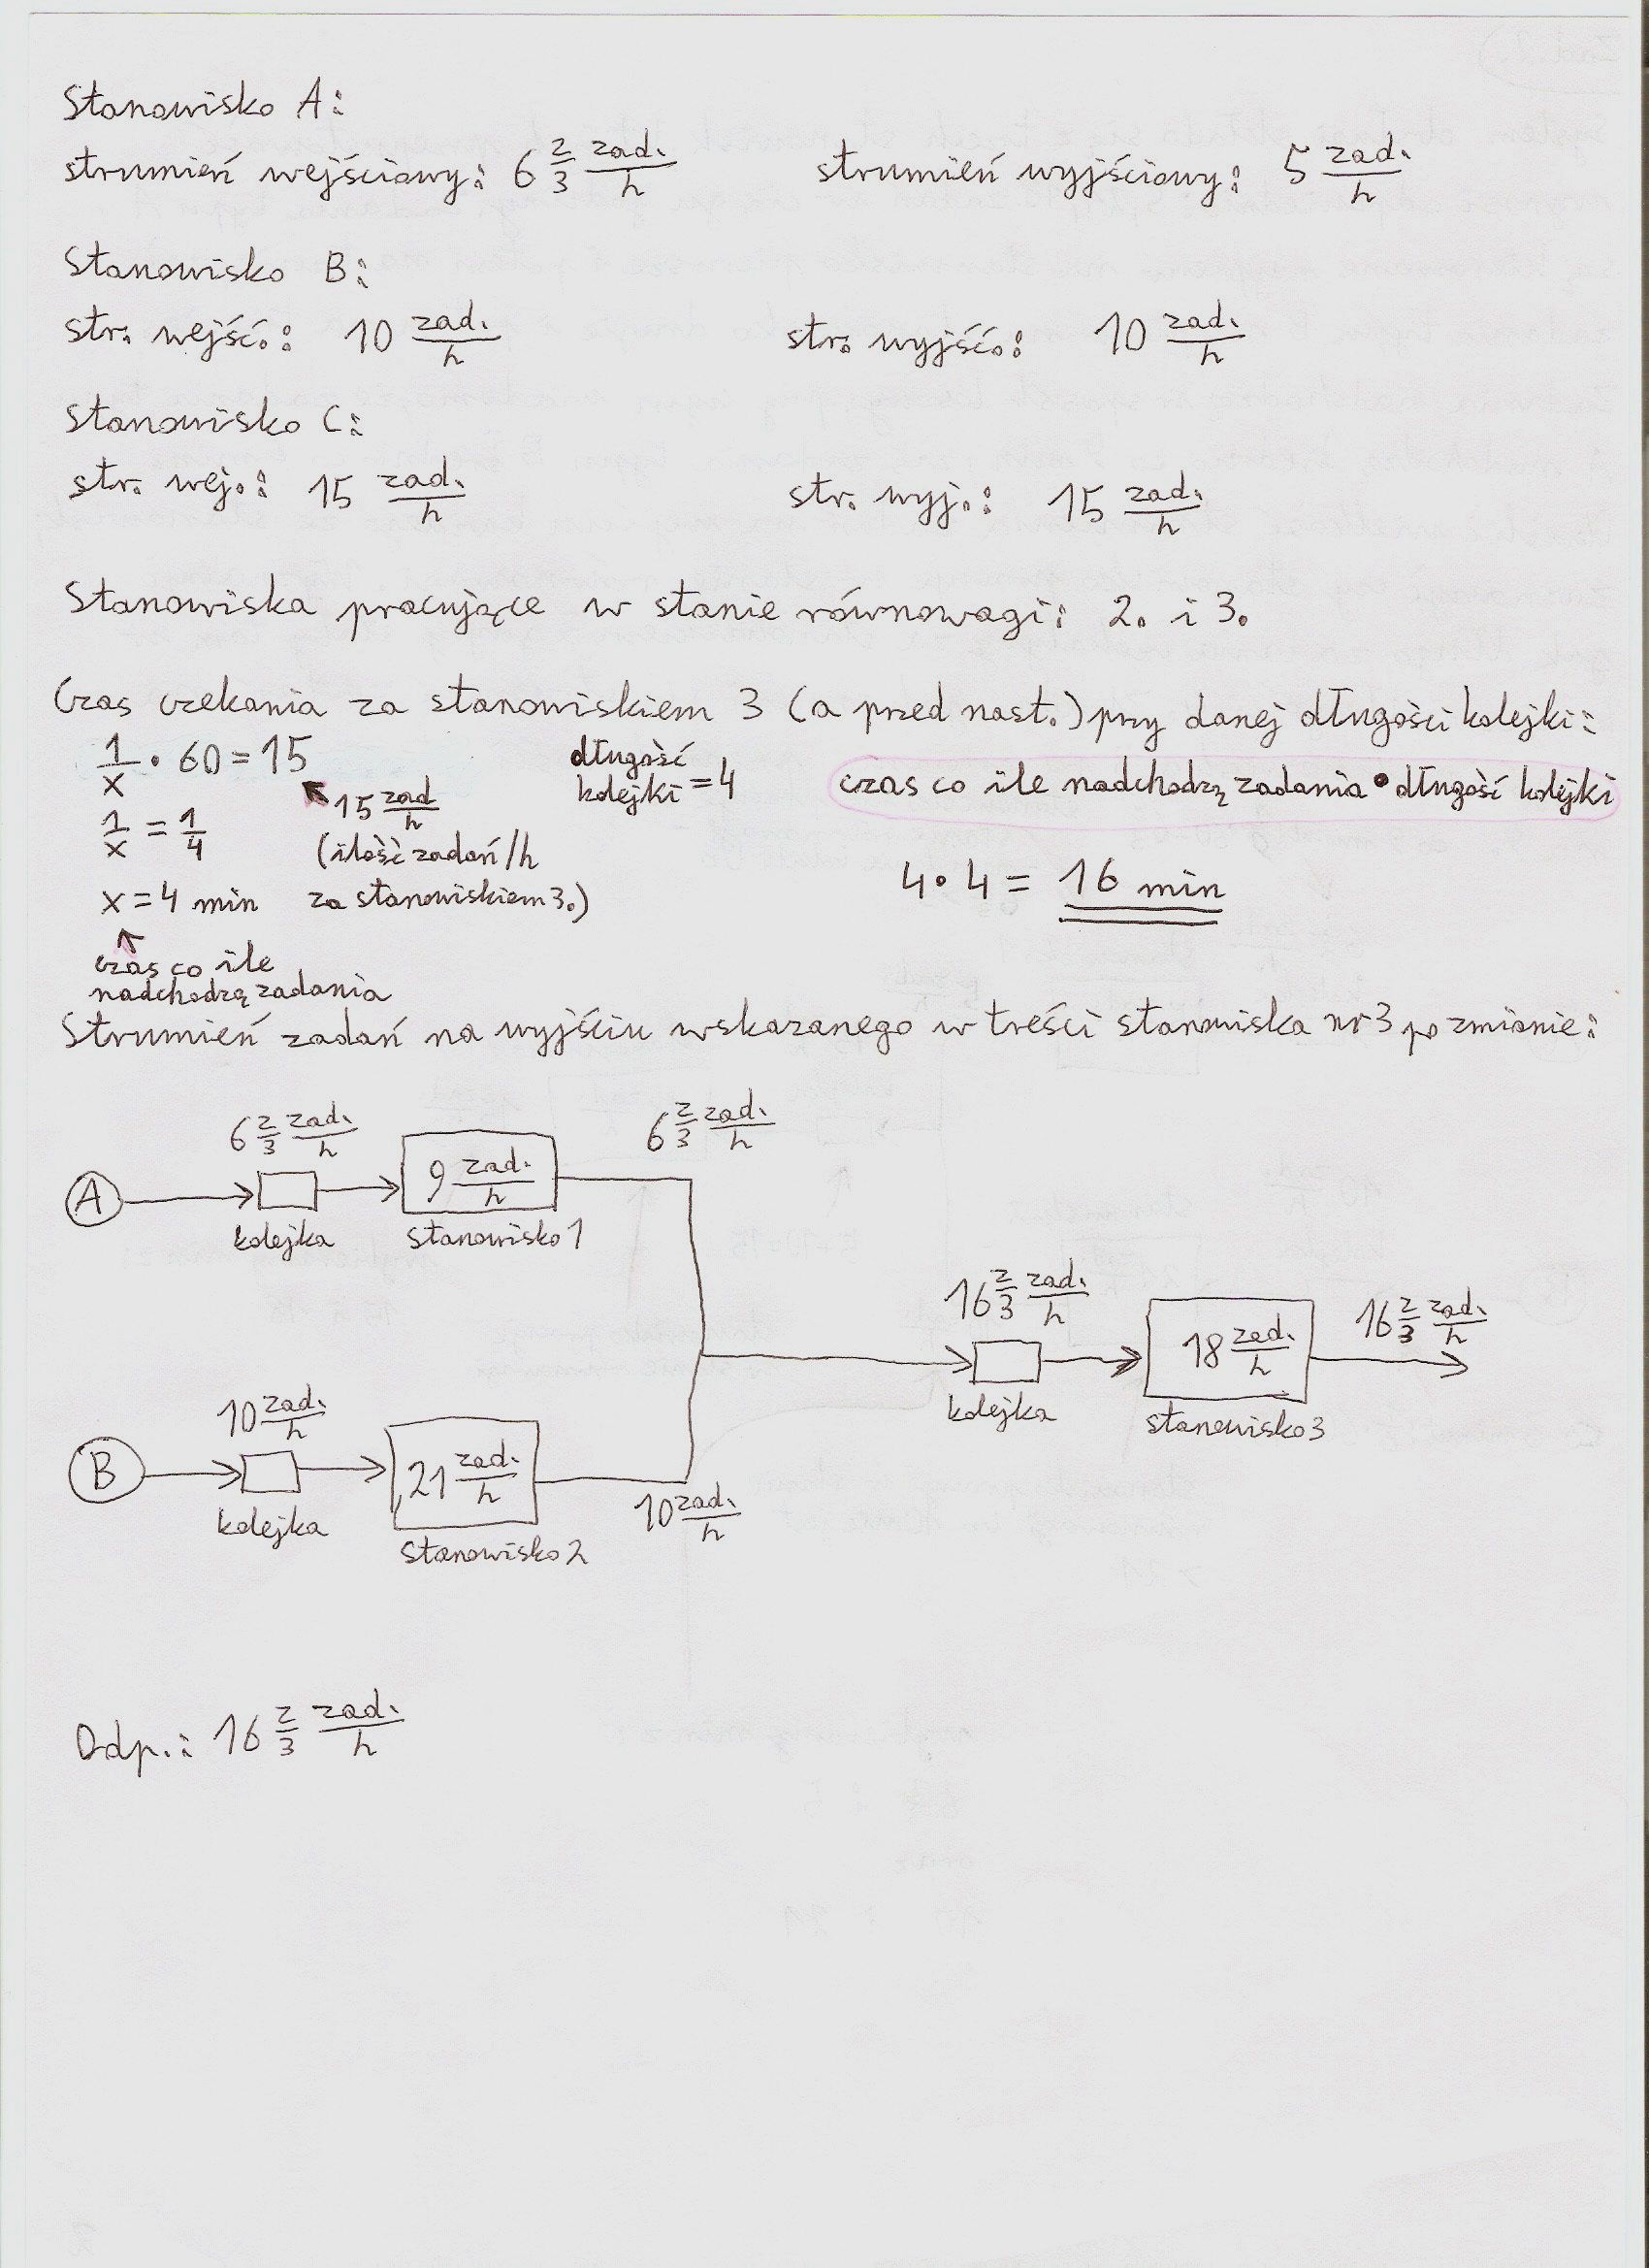 Stanowisko A:
strumień wejściowy: 6 2/3 zad./h strumień wyjściowy: 5 zad./h
Stanowisko B:
str. wejść.: 10 zad./h str. wyjść.: 10 zad./h
Stanowisko C:
str. wej.: 15 zad./h str. wyj.: 15 zad./h
Stanowiska pracujące w stanie równowagi: 2. i 3.
Czas czekania za stanowiskiem 3 (a przed nast.) przy danej długości kolejki:
1/x • 60 = 15
15 zad/h
(ilość zadań/h
za stanowiskiem 3.)
1/x = 1/4
x = 4 min
czas co ile
nadchodzą zadania
długość
kolejki = 4
czas co ile nadchodzą zadania • długość kolejki
4 • 4 = 16 min
Strumień zadań na wyjściu wskazanego w treści stanowiska nr 3 po zmianie:
6 2/3 zad./h
6 2/3 zad./h
A
9 zad./h
kolejka
stanowisko 1
16 2/3 zad./h
18 zad./h
16 2/3 zad./h
kolejka
stanowisko 3
10 zad./h
B
21 zad./h
10 zad./h
kolejka
stanowisko 2
Odp.: 16 2/3 zad./h